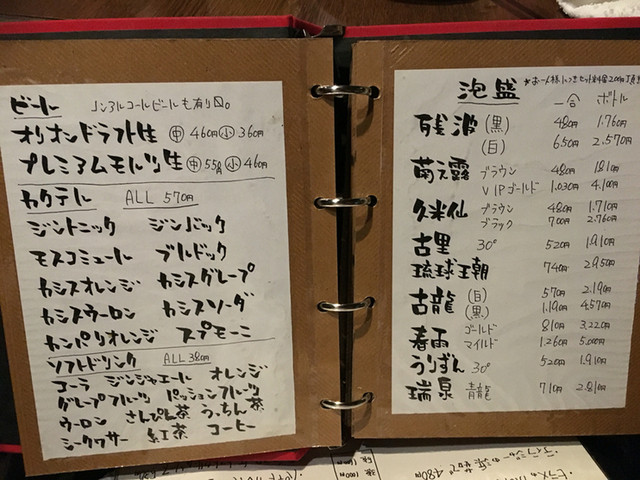 ビール ノンアルコールビールも有り〼。
オリオンドラフト生 中 460円 小 360円
プレミアムモルツ生 中 550 小 460円
カクテル ALL 570円
ジントニック ジンバック
モスコミュール ブルドック
カシスオレンジ カシスグレープ
カシスウーロン カシスソーダ
カンパリオレンジ スプモーニ
ソフトドリンク ALL 380円
コーラ ジンジャエール オレンジ
グレープフルーツ パッションフルーツ
ウーロン さんぴん茶 うっちん茶
シークワサー 紅茶 コーヒー
泡盛
一合 ボトル
残波 (黒) 480円 1.760
(白) 650円 2.570
菊之露 ブラウン 480円 1.810
VIPゴールド 1.030円 4.100
久米仙 ブラウン 480円 1.710
ブラック 700円 2.760
古里 30° 520円 1.910
琉球王朝 740円 2.950
古龍 (白) 570円 2.190
(黒) 1.190円 4.570
春雨 ゴールド 810円 3.220
マイルド 1.260円 5.000
うりずん 30° 520円 1.910
瑞泉 青龍 710円 2.810